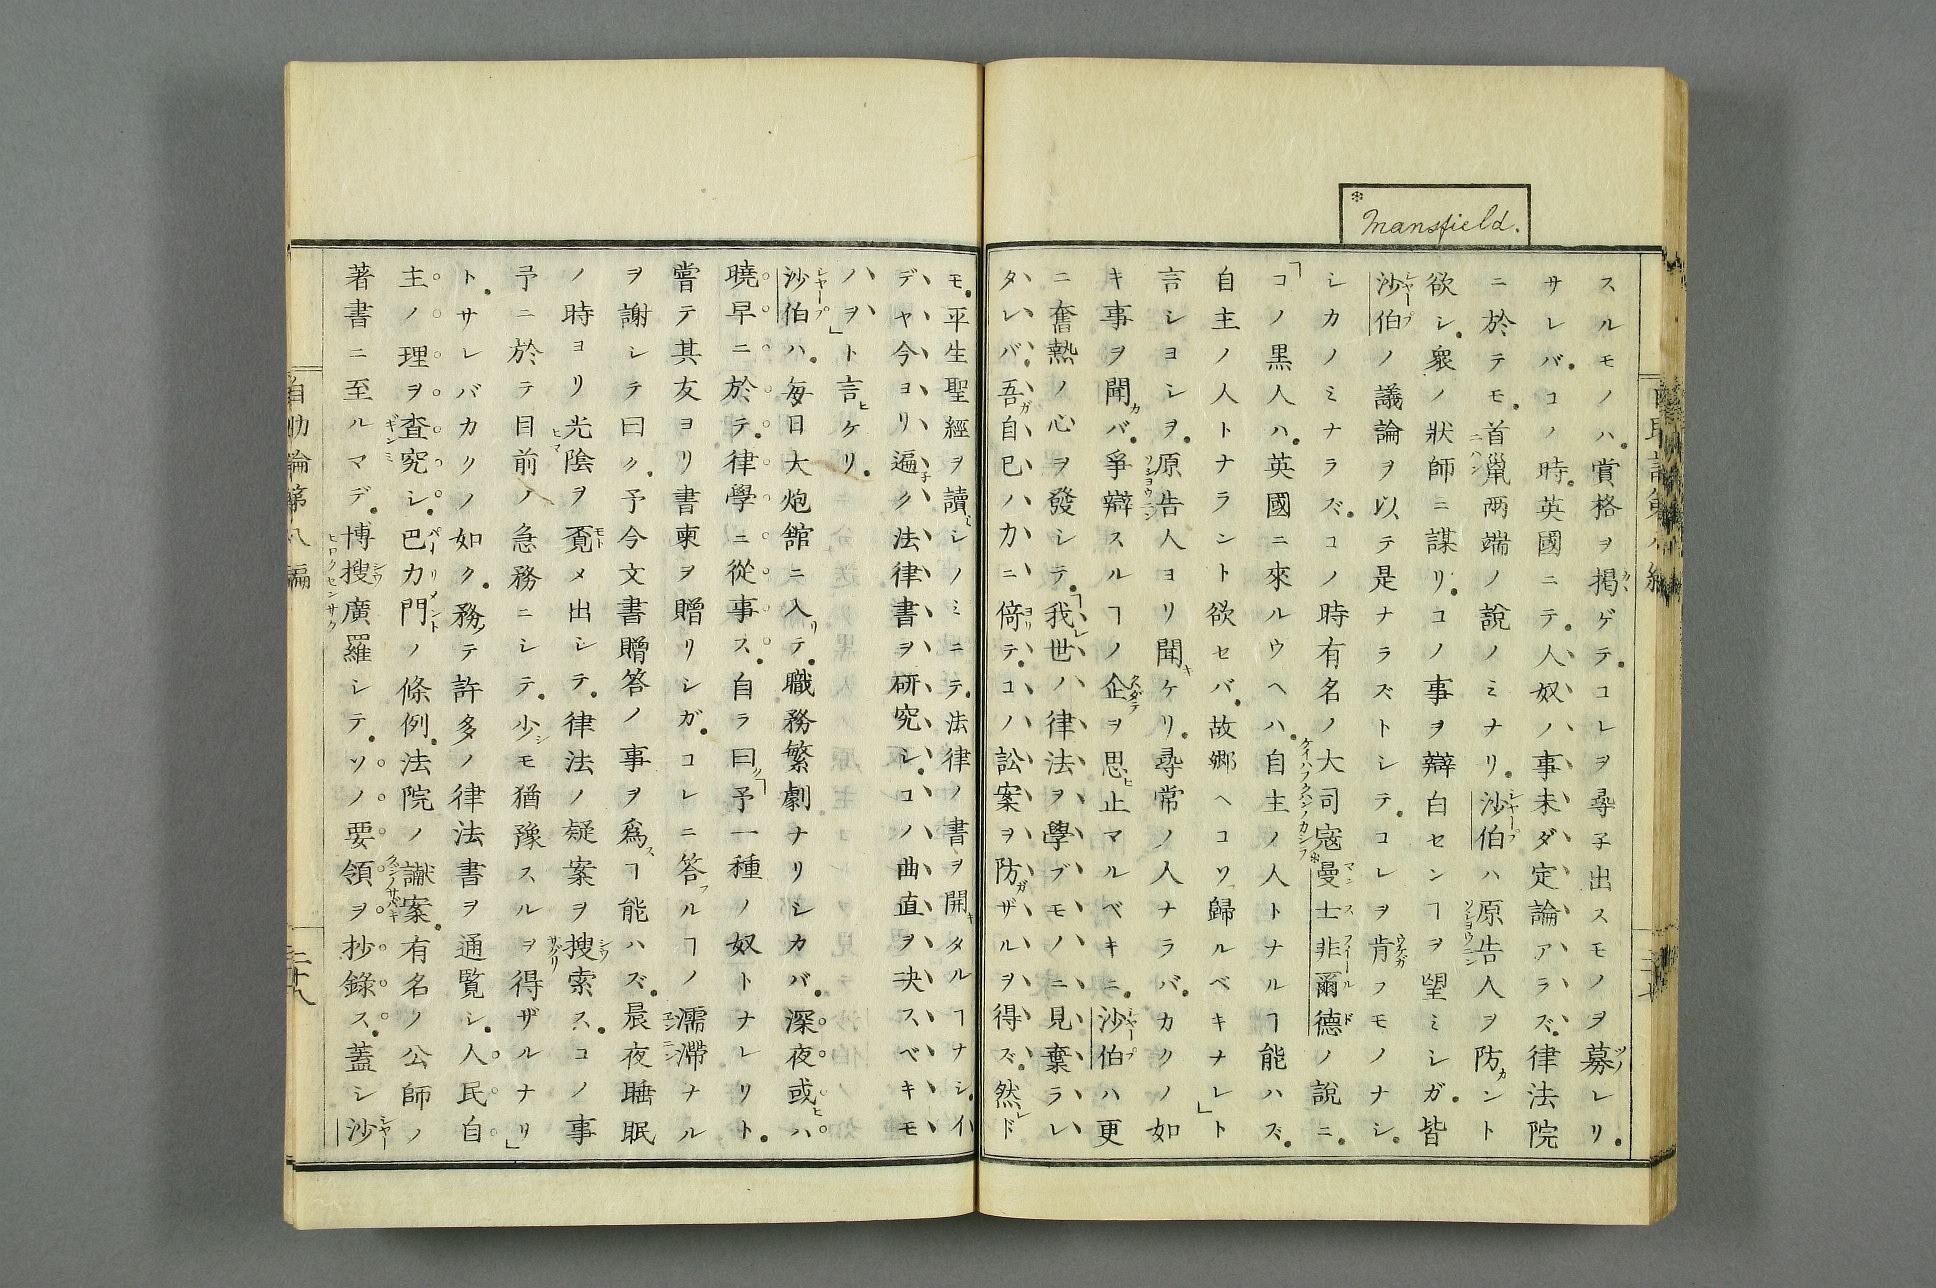 *Mansfield.
スルモノハ。賞格ヲ掲ゲテ。コレヲ尋子出スモノヲ募レリ。
サレバコノ時。英國ニテ。人奴ノ事未ダ定論アラズ。律法院
ニ於テモ。首鼠兩端ノ說ノミナリ。沙伯ハ原告人ヲ防ント
欲シ。衆ノ狀師ニ謀リ。コノ事ヲ辯白センヿヲ望ミシガ。皆
沙伯ノ議論ヲ以テ是ナラズトシテ。コレヲ肯フモノナシ。
シカノミナラズ。コノ時有名ノ大司寇*曼士非爾德ノ說ニ。
「コノ黒人ハ。英國ニ來ルウヘハ。自主ノ人トナルヿ能ハズ。
自主ノ人トナラント欲セバ。故郷ヘコソ歸ルベキナレ」ト
言シヨシヲ。原告人ヨリ聞ケリ。尋常ノ人ナラバ。カクノ如
キ事ヲ聞バ。爭辯スルヿノ企ヲ思止マルベキニ。沙伯ハ更
ニ奮熱ノ心ヲ發シテ。「我世ノ律法ヲ學ブモノニ見棄ラレ
タレバ。吾自已ハカニ倚テ。コノ訟案ヲ防ザルヲ得ズ。然ド
モ。平生聖經ヲ讀シノミニテ。法律ノ書ヲ開タルヿナシ。イ
デヤ今ヨリ遍ク法律書ヲ研究シ。コノ曲直ヲ决スベキモ
ハヲ」ト言ケリ。
沙伯ハ。毎日大炮館ニ入テ。職務繁劇ナリシカバ。深夜或ハ
曉早ニ於テ。律學ニ從事ス。自ラ曰「予一種ノ奴トナレリト。
嘗テ其友ヨリ書柬ヲ贈リシガ。コレニ答ルヿノ濡滯ナル
ヲ謝シテ曰ク。予今文書贈答ノ事ヲ爲ヿ能ハズ。晨夜睡眠
ノ時ヨリ光陰ヲ覔メ出シテ。律法ノ疑案ヲ搜索ス。コノ事
予ニ於テ目前ノ急務ニシテ。少モ猶豫スルヲ得ザルナリ」
ト。サレバカクノ如ク。務テ許多ノ律法書ヲ通覧シ。人民自
主ノ理ヲ査究シ。巴力門ノ條例。法院ノ讞案。有名ノ公師ノ
著書ニ至ルマデ。博搜廣羅シテ。ソノ要領ヲ抄錄ス。蓋シ沙
自助論第八編
二十八